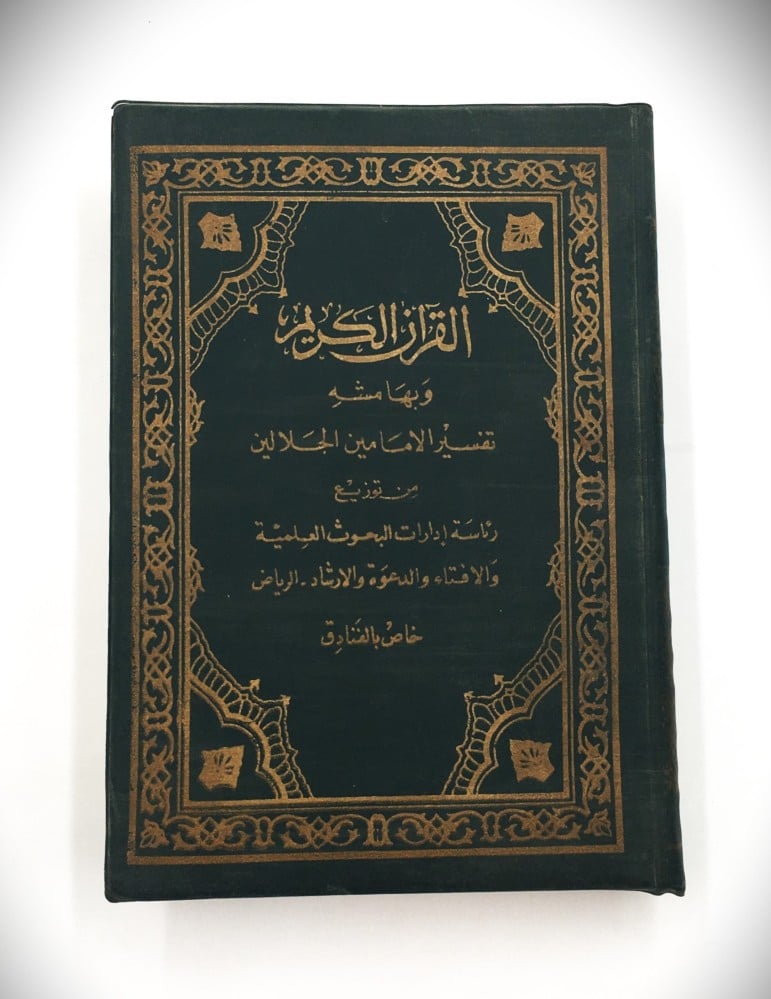 القرآن الكريم
وبهامشه
تفسير الامامين الجلالين
من توزيع
رئاسة إدارات البحوث العلمية
والافتاء والدعوة والارشاد - الرياض
خاص بالفنادق